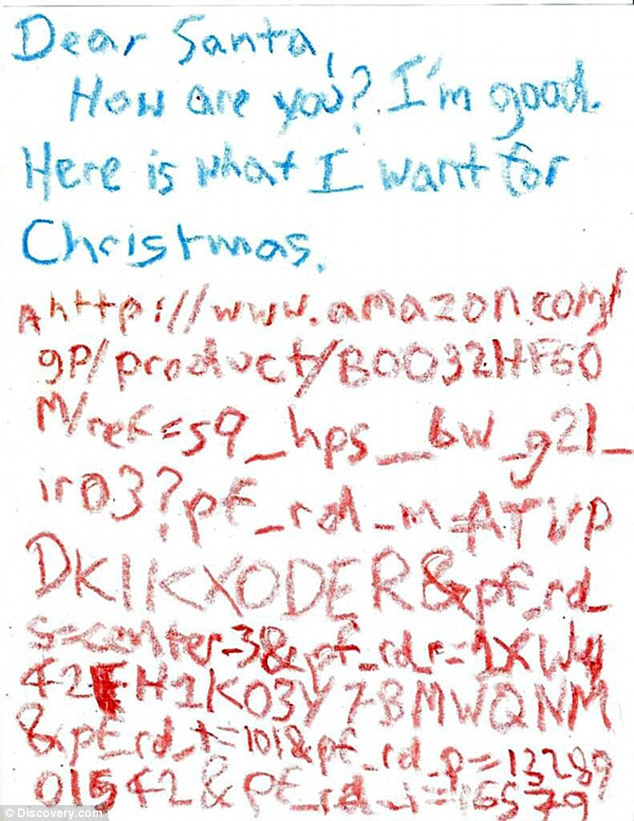 Dear Santa,
How are you? I'm good.
Here is what I want for
Christmas.
A http://www.amazon.com/
gp/product/B0032HF60
M/ref=s9_hps_bw_g21_
ir03?pf_rd_m=ATVP
DKIKX0DER&pf_rd_
s=center-3&pf_rd_r=1XW4
42FH1K03Y78MWQNM
&pf_rd_t=101&pf_rd_p=13289
01542&pf_rd_i=165579
© Discovery.com